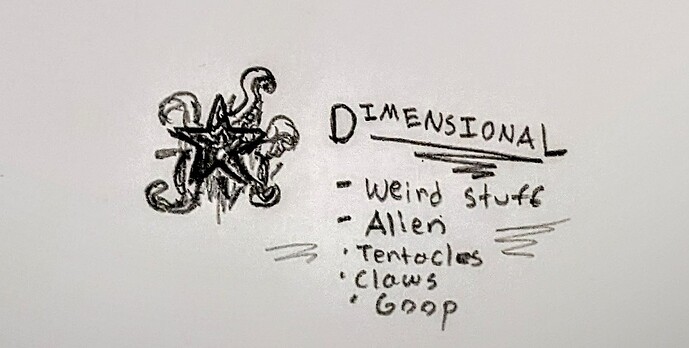 DIMENSIONAL
- Weird stuff
- Alien
· Tentacles
· Claws
· Goop